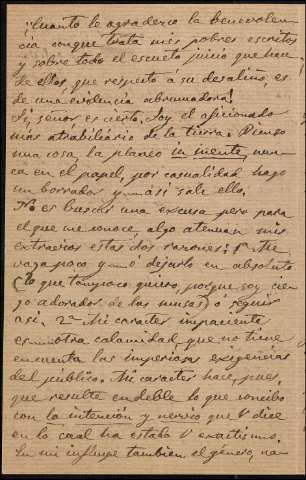 ¡Cuánto le agradezco la benevolen-
cia conque trata mis pobres escritos
y sobre todo el escueto juicio que hace
de ellos que respecto á su desaliño es
de una evidencia abrumadora!
Sí, señor es cierto, soy el aficionado
más atrabiliario de la tierra: Pienso
una cosa, la planeo in mente, nun-
ca en el papel, por casualidad hago
un borrador y... así sale ello.
No es buscar una excusa pero para
el que me conoce, algo atenuan mis
extravios estas dos razones: 1ª Me
vaga poco y... ó dejarlo en absoluto
(lo que tampoco quiero, porque soy cie-
go adorador de las musas) ó seguir
así. 2ª Mi caracter impaciente
es... otra calamidad, que no tiene
en cuenta las imperiosas exigencias
del público. Mi caracter hace, pues,
que resulte endeble lo que concibo
con la intención y nervio que V dice
en lo cual ha estado V exactísimo.
En mi influye tambien el género, na-